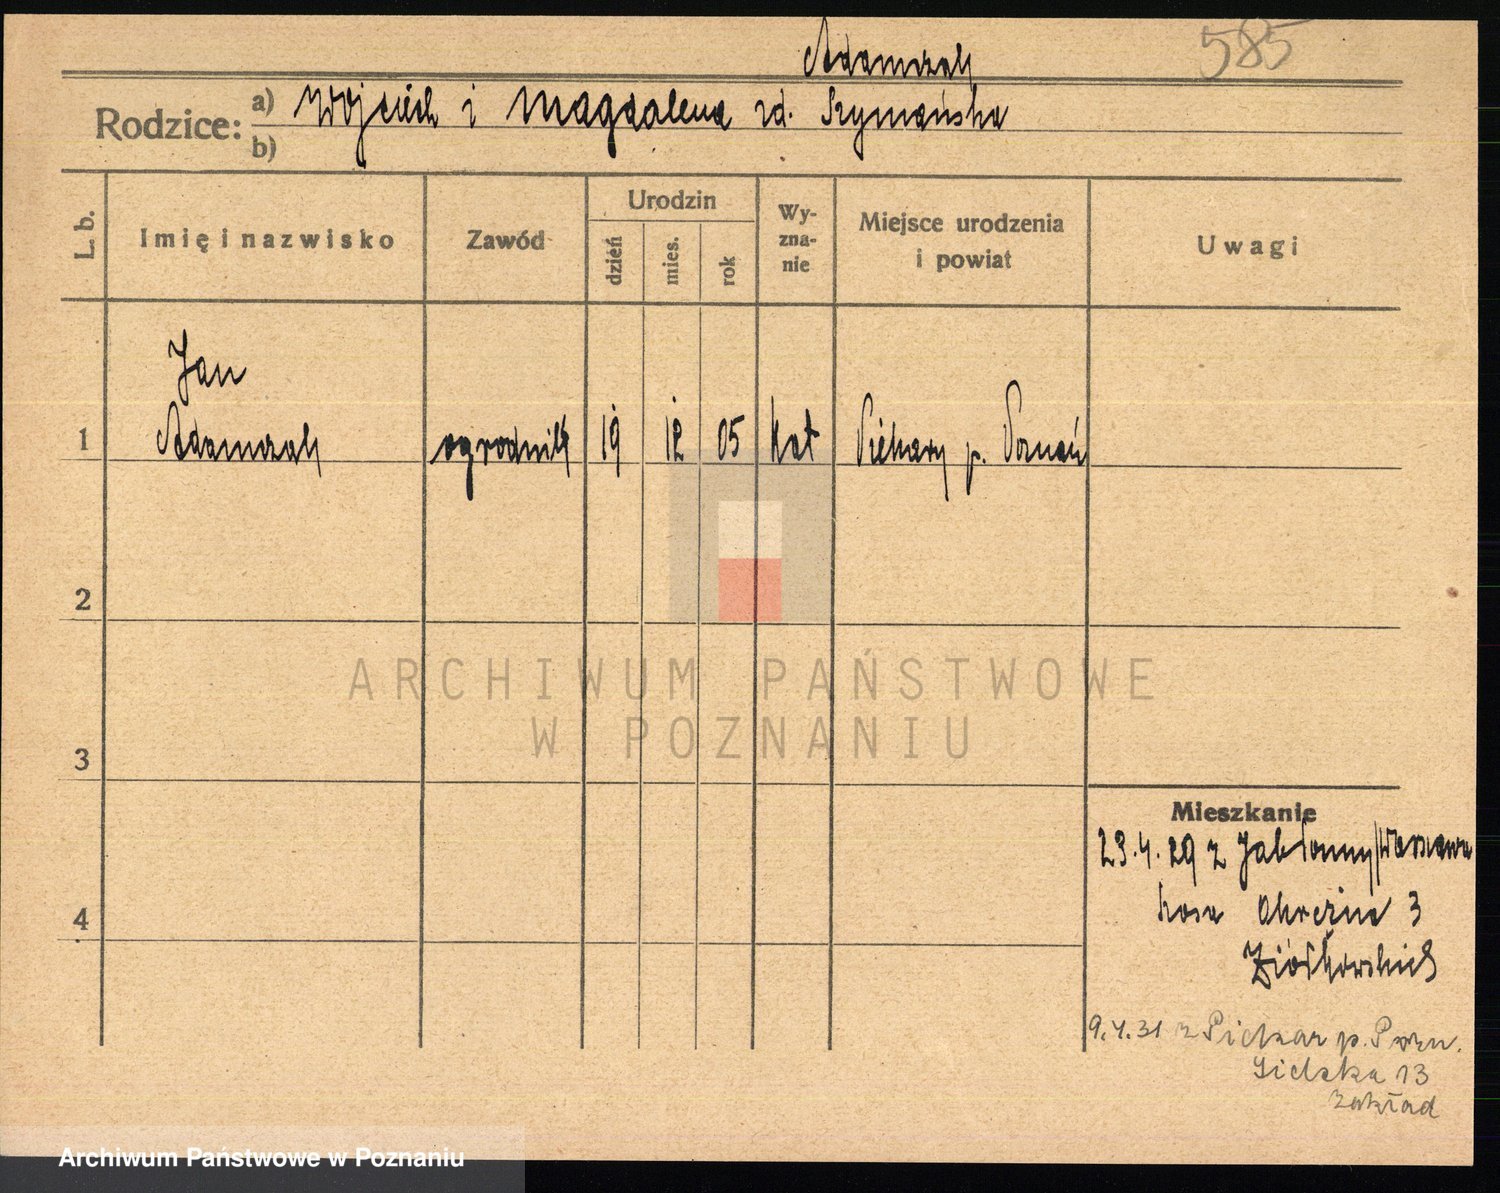 Adamczak
585
Rodzice: a) Wojciech i Magdalena zd. Szymańska
b)
L. b.
Imię i nazwisko
Zawód
Urodzin
dzień
mies.
rok
Wy-
zna-
nie
Miejsce urodzenia
i powiat
Uwagi
Jan
1 Adamczak ogrodnik 19 12 05 kat Piekary p. Poznań
2
3
4
Mieszkanie
23.4.29 z Jabłonny/Warszawa
3
9.4.31 z Piekar p. Pozn.
13
zakład
ARCHIWUM PAŃSTWOWE
W POZNANIU
Archiwum Państwowe w Poznaniu